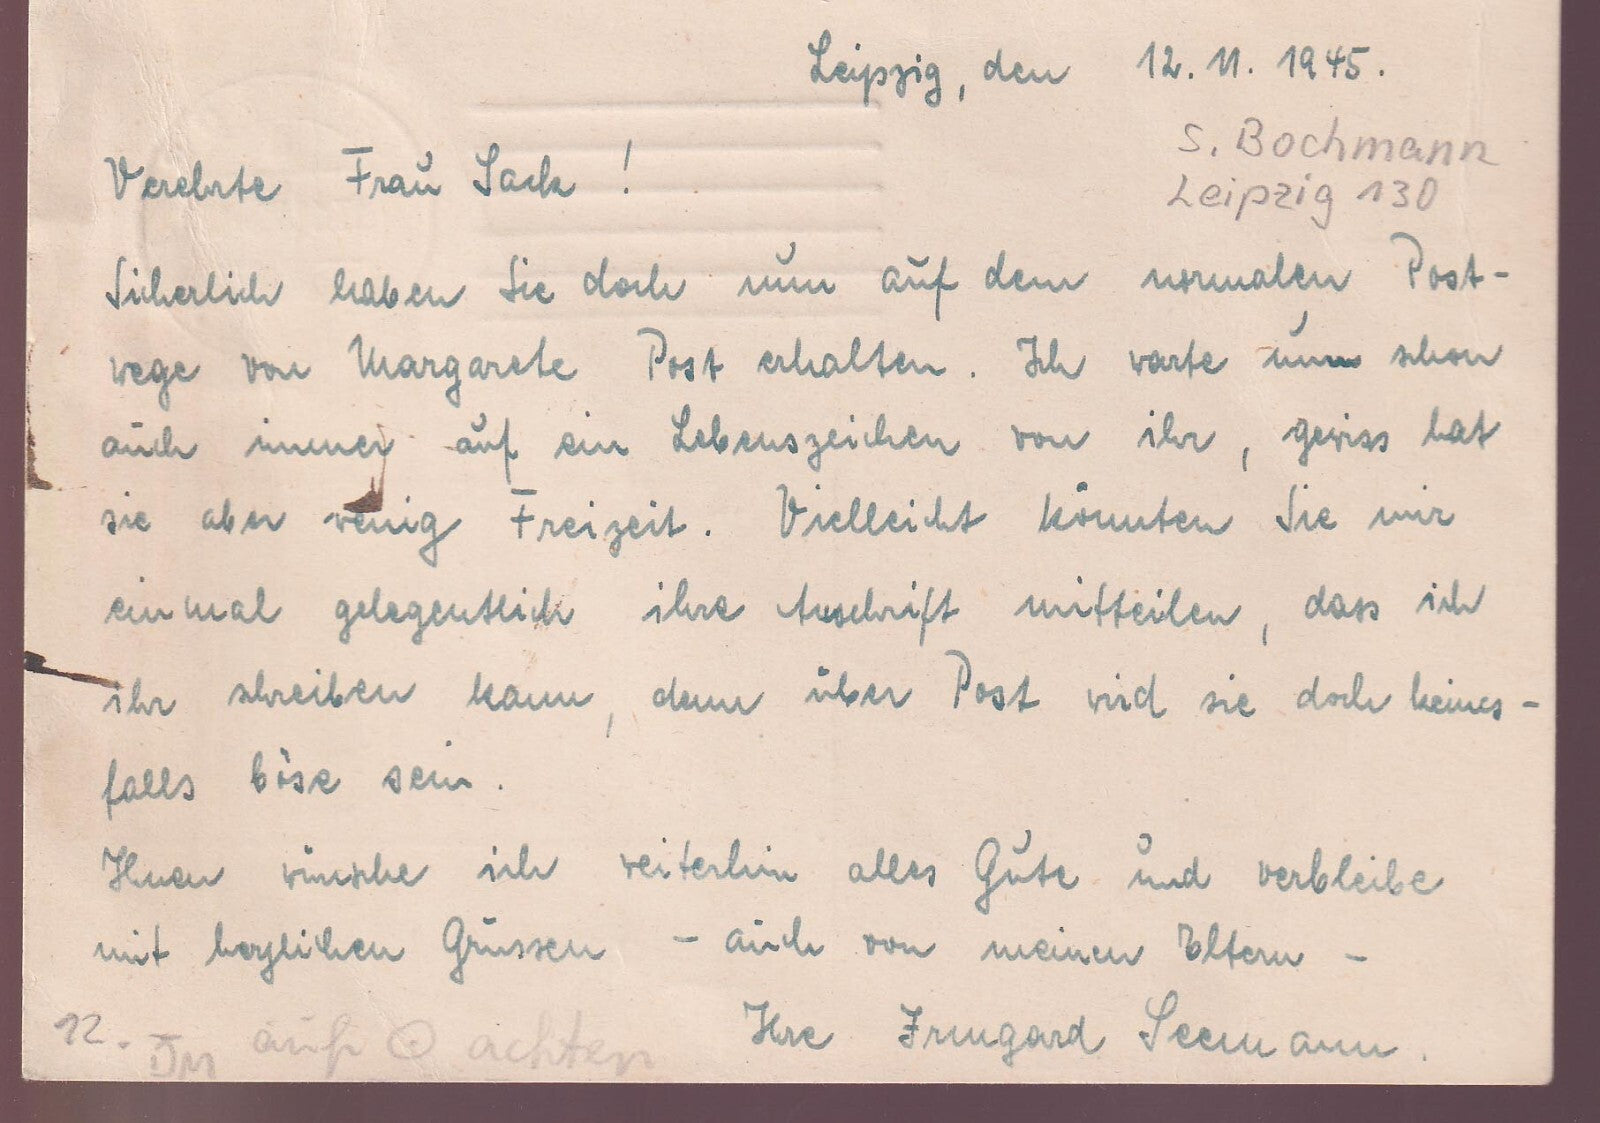 Leipzig, den 12.11.1945.
S. Bochmann
Leipzig 130
Verehrte Frau Sack!
Sicherlich haben Sie doch nun auf dem normalen Post-
wege von Margarete Post erhalten. Ich warte nun schon
auch immer auf ein Lebenszeichen von ihr, gewiss hat
sie aber wenig Freizeit. Vielleicht könnten Sie mir
einmal gelegentlich ihre Anschrift mitteilen, dass ich
ihr schreiben kann, denn über Post wird sie doch keines-
falls böse sein.
Ihnen wünsche ich weiterhin alles Gute und verbleibe
mit herzlichen Grüssen - auch von meinen Eltern -
Ihre Irmgard Seemann.
12. auf achten